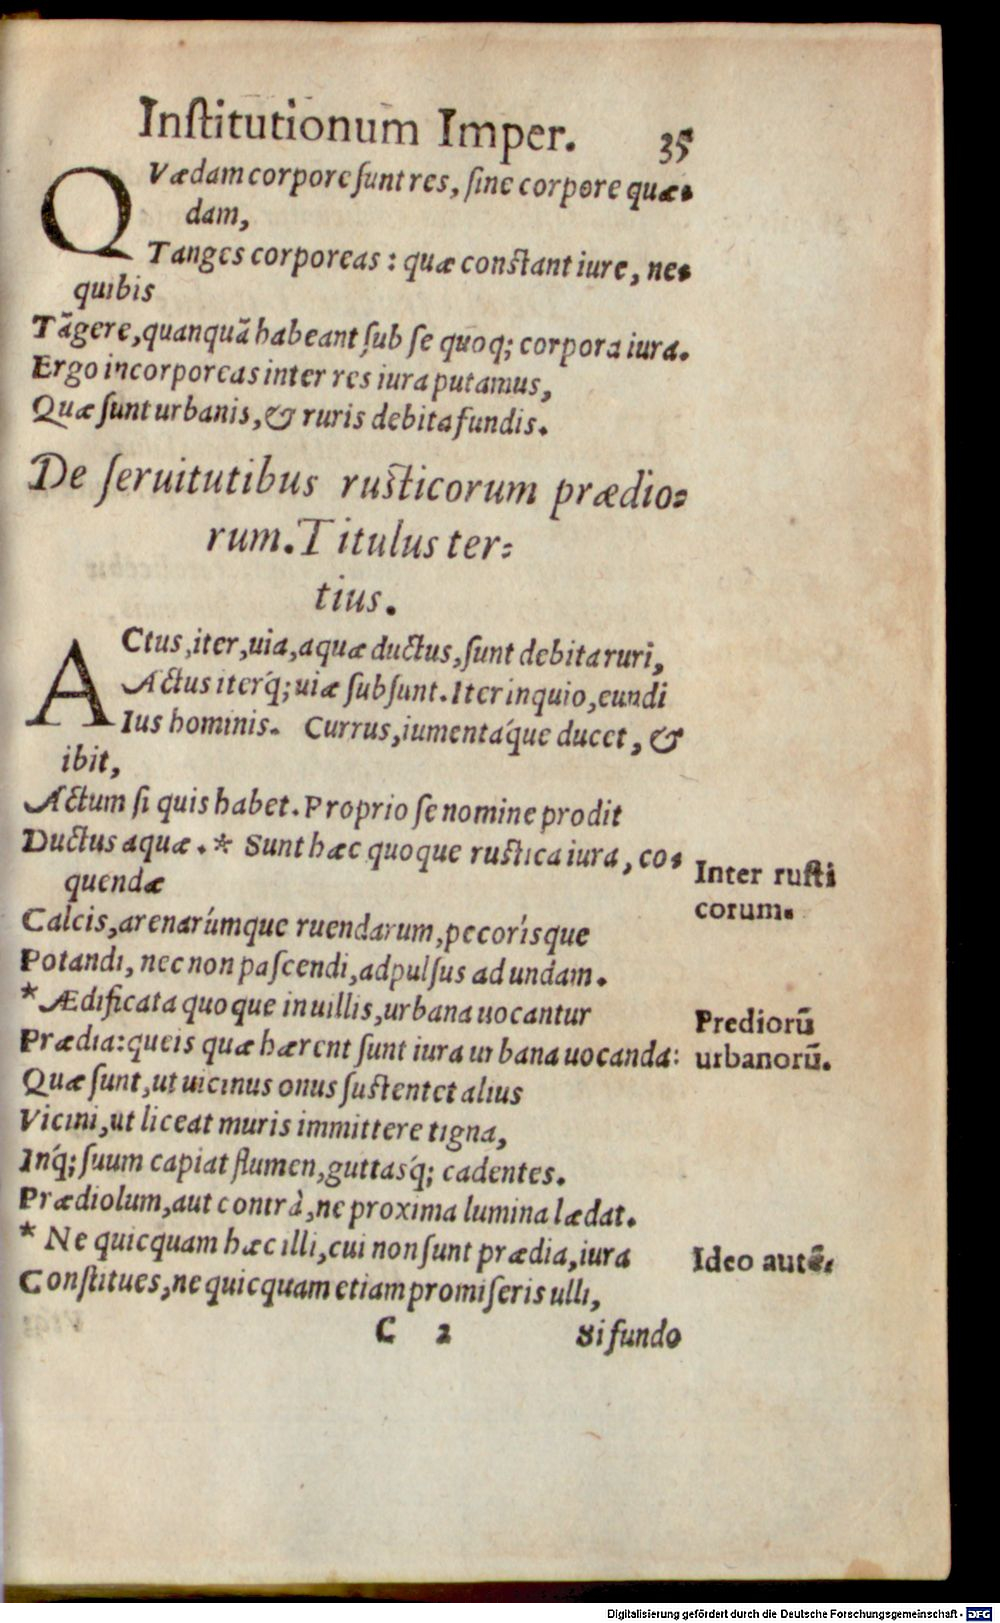 Inſtitutionum Imper. 35
QVædam corpore ſunt res, ſine corpore quæ-
dam,
Tanges corporeas: quæ conſtant iure, ne-
quibis
Tãgere, quanquã habeant ſub ſe quoq; corpora iura.
Ergo incorporeas inter res iura putamus,
Quæ ſunt urbanis, & ruris debita fundis.
De ſeruitutibus ruſticorum prædio-
rum. Titulus ter-
tius.
ACtus, iter, uia, aquæ ductus, ſunt debita ruri,
Actus iterq́; uiæ ſubſunt. Iter inquio, eundi
Ius hominis. Currus, iumentáque ducet, &
ibit,
Actum ſi quis habet. Proprio ſe nomine prodit
Ductus aquæ. * Sunt hæc quoque ruſtica iura, co-
quendæ
Inter ruſti
corum.
Calcis, arenarúmque ruendarum, pecorísque
Potandi, nec non paſcendi, adpulſus ad undam.
* Ædificata quoque in uillis, urbana uocantur
Prædia: queis quæ hærent ſunt iura urbana uocanda:
Prediorũ
urbanorũ.
Quæ ſunt, ut uicinus onus ſuſtentet alius
Vicini, ut liceat muris immittere tigna,
Inq́; ſuum capiat flumen, guttasq́; cadentes.
Prædiolum, aut contrà, ne proxima lumina lædat.
* Ne quicquam hæc illi, cui non ſunt prædia, iura
Ideo autẽ.
Conſtitues, ne quicquam etiam promiſeris ulli,
C 2 Si fundo
Digitalisierung gefördert durch die Deutsche Forschungsgemeinschaft - DFG